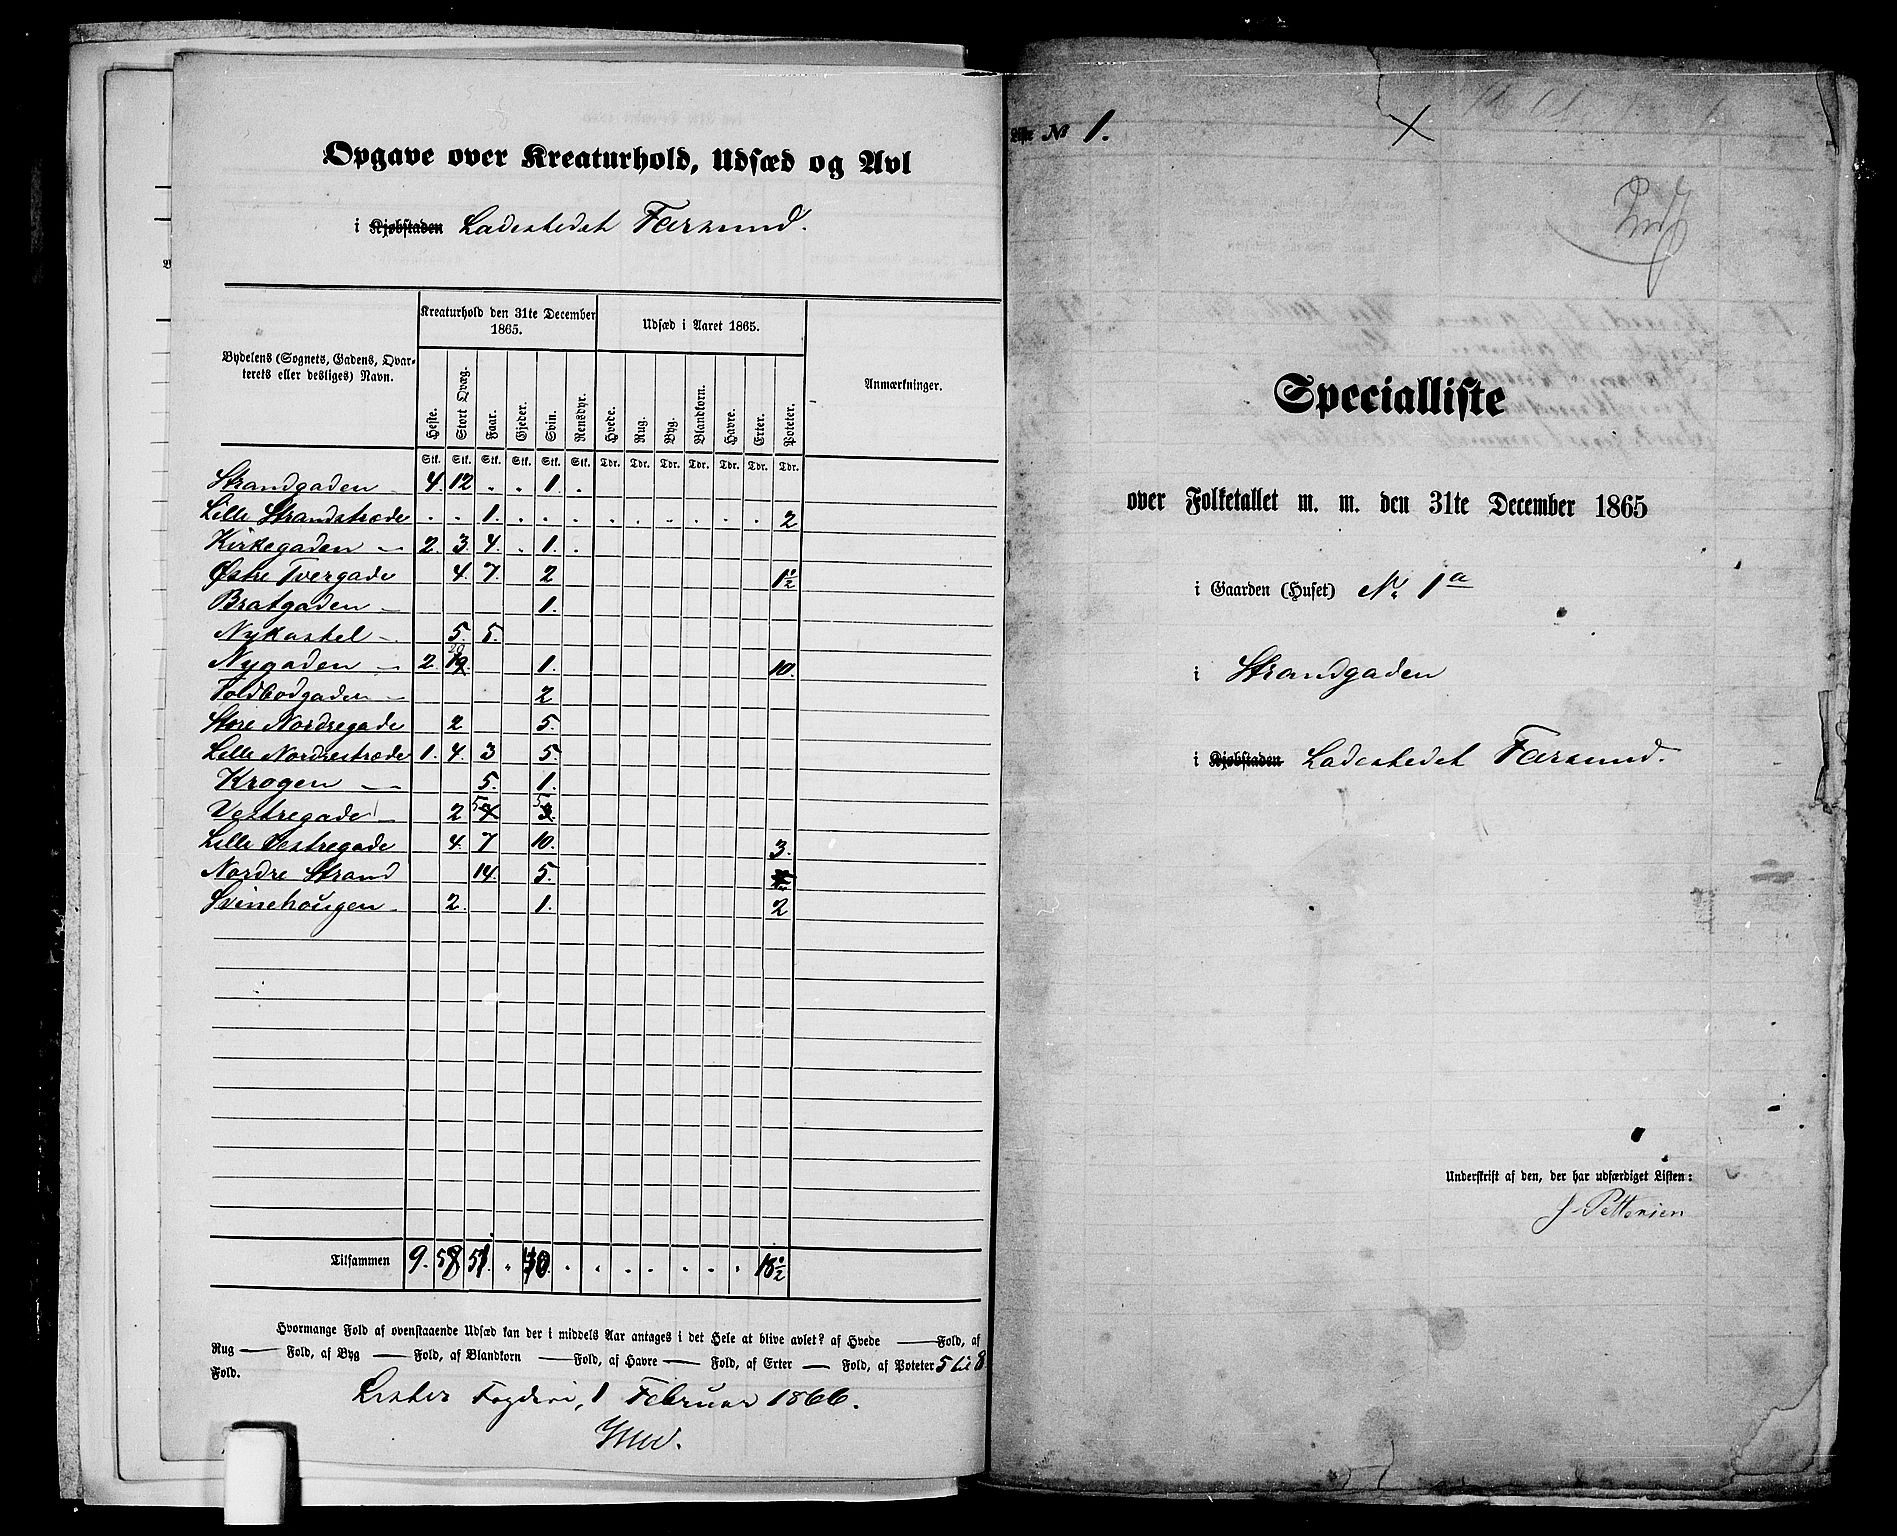 Opgave over Kreaturhold, Udsæd og Avl
i Kjøbstaden Ladestedet Farsund.
Bydelens (Sognets, Gadens, Qvarterets eller desliges) Navn. Kreaturhold den 31te December 1865. Udsæd i Aaret 1865. Anmærkninger.
Heste. Stort Qvæg. Faar. Gjeder. Svin. Rensdyr. Hvede. Rug. Byg. Blandkorn. Havre. Erter. Poteter.
Stk. Stk. Stk. Stk. Stk. Stk. Tdr. Tdr. Tdr. Tdr. Tdr. Tdr. Tdr.
Strandgaden 4. 12 . . 1. .
Lille Strandstræde . . 1. . . . . . . . . . 2
Kirkegaden — 2. 3. 4. . 1. .
Østre Tvergade 4. 7. 2 1 1/2
Bratgaden — 1.
Nykastel — 5. 5.
Nygaden — 2. 20 19 1. 10.
Toldbodgaden — 2
Store Nordregade 2 5.
Lille Nordrestræde 1. 4. 3 5.
Krogen — 5. 1.
Vestregade — 2 5 4 5 3.
Lille Vestregade 4. 7 10. 3.
Nordre Strand 14. 5.
Svinehougen 2. 1. 2
Tilsammen 9. 58 51. . 40 . . . . . . . 18 1/2
Hvormange Fold af ovenstaaende Udsæd kan der i middels Aar antages i det Hele at blive avlet? af Hvede — Fold, af
Rug — Fold, af Byg — Fold, af Blandkorn — Fold, af Havre — Fold, af Erter — Fold, af Poteter 5 til 8
Fold.
Listers Fogderi, 1 Februar 1866.
Liste № 1.
Specialliste
over Folketallet m. m. den 31te December 1865
i Gaarden (Huset) Nr. 1 a
i Strandgaden
i Kjøbstaden Ladestedet Farsund.
Underskrift af den, der har udfærdiget Listen:
J. Pettersen